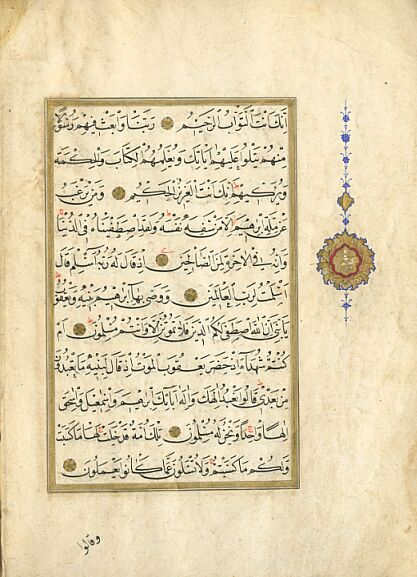 انك انت التواب الرحيم ربنا وابعث فيهم رسولا
منهم يتلوا عليهم اياتك ويعلمهم الكتاب والحكمة
ويزكيهم انك انت العزيز الحكيم ومن يرغب
عن ملة ابرهيم الا من سفه نفسه ولقد اصطفيناه في الدنيا
وانه في الاخرة لمن الصالحين اذ قال له ربه اسلم قال
اسلمت لرب العالمين ووصى بها ابرهيم بنيه ويعقوب
يا بني ان الله اصطفى لكم الدين فلا تموتن الا وانتم مسلمون ام
كنتم شهداء اذ حضر يعقوب الموت اذ قال لبنيه ما تعبدون
من بعدي قالوا نعبد الهك واله ابائك ابرهيم واسمعيل واسحق
الها واحدا ونحن له مسلمون تلك امة قد خلت لها ما كسبت
ولكم ما كسبتم ولا تسئلون عما كانوا يعملون
وقالوا